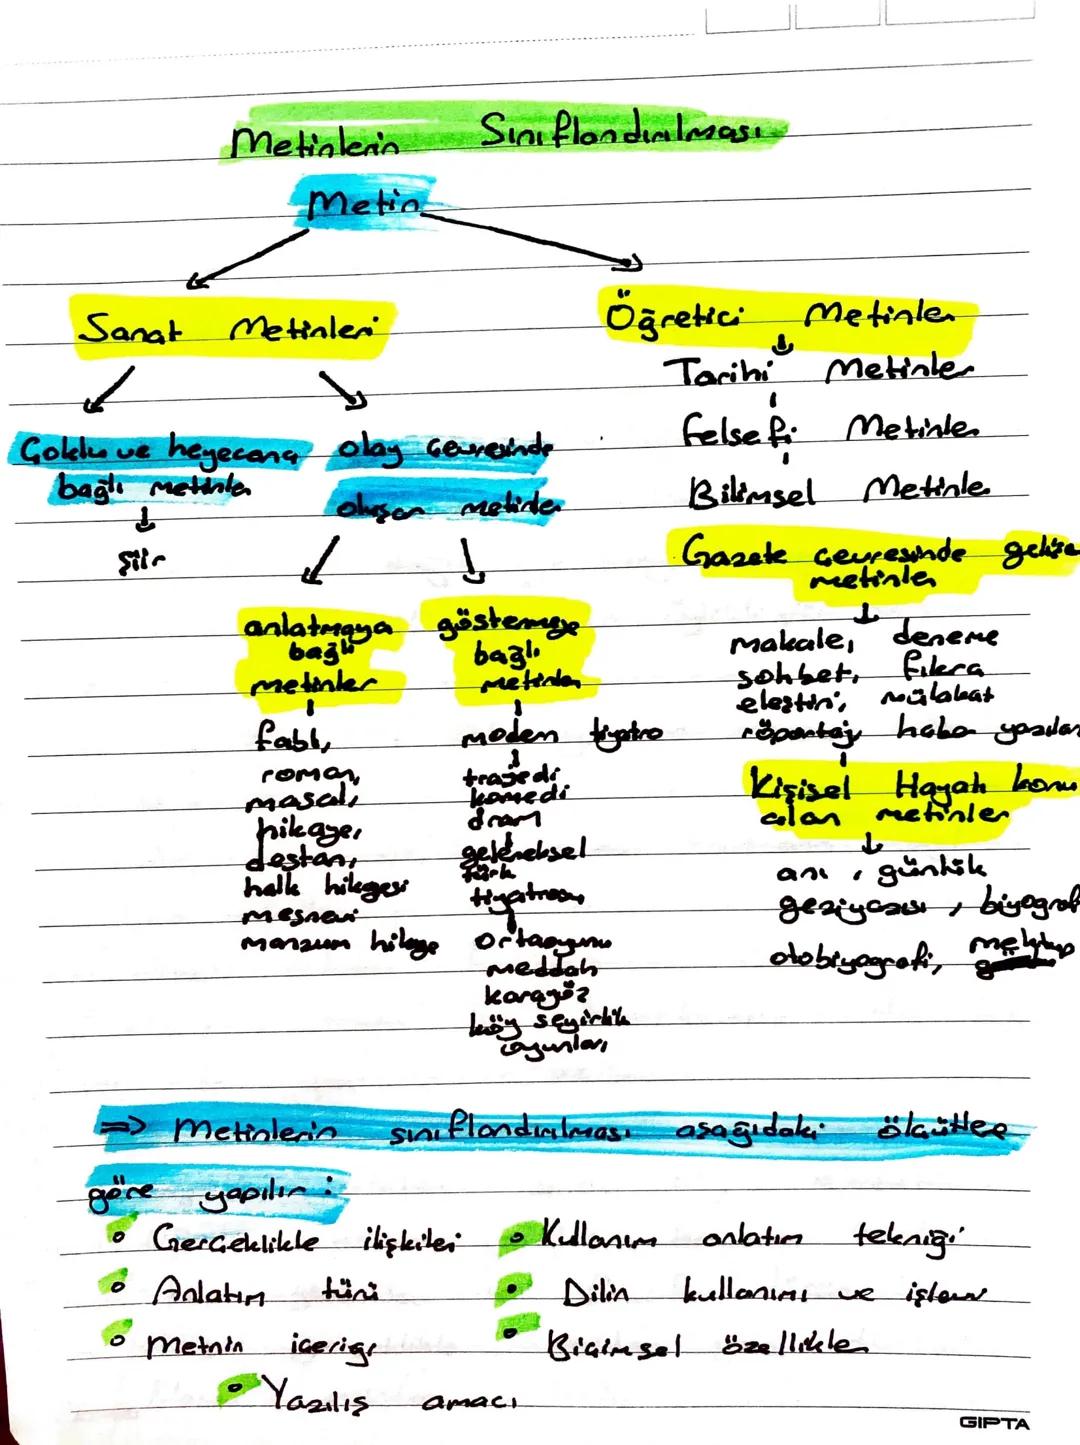 Metinlerin Sınıflandırılması
Metin
Sanat Metinleri
Öğretici Metinler
Tarihi Metinler
Felsefi Metinler
Bilimsel Metinler
Coşku ve heyecana
bağlı metinler
şiir
olay çevresinde
oluşan metinler
anlatmaya
bağlı
metinler
fabl,
roman,
masal,
hikaye,
destan,
halk hikayesi
mesnevi
manzum hikaye
göstermeye
bağlı
metinler
modern tiyatro
trajedi
komedi
dram
geleneksel
türk
tiyatrosu
Ortaoyunu
meddah
karagöz
köy seyirlik
oyunları
Gazete çevresinde gelişe
metinler
makale, deneme
sohbet, fıkra
eleştiri, mülakat
röportaj haber yazıları
Kişisel Hayatı konu
alan metinler
anı, günlük
geziyazısı, biyografi
otobiyografi, mektup
=> Metinlerin sınıflandırılması aşağıdaki ölçütlere
göre yapılır :
• Gerçeklikle ilişkileri
• Kullanım anlatım tekniği
• Anlatım türü
• Dilin kullanımı ve işlevi
• Metnin içeriği
• Biçimsel özellikler
• Yazılış amacı
GIPTA